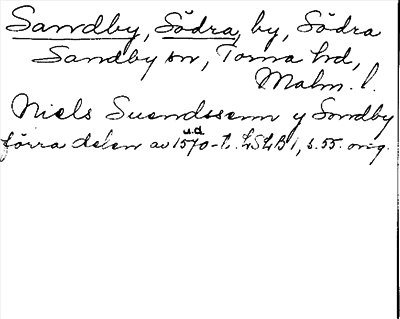 Sandby, Södra, by, Södra
Sandby sn, Torna hd,
Malm. l.
Niels Suendssenn y Sandby
u.d.
förra delen av 1570-t. LSLB 1, s. 55. orig.